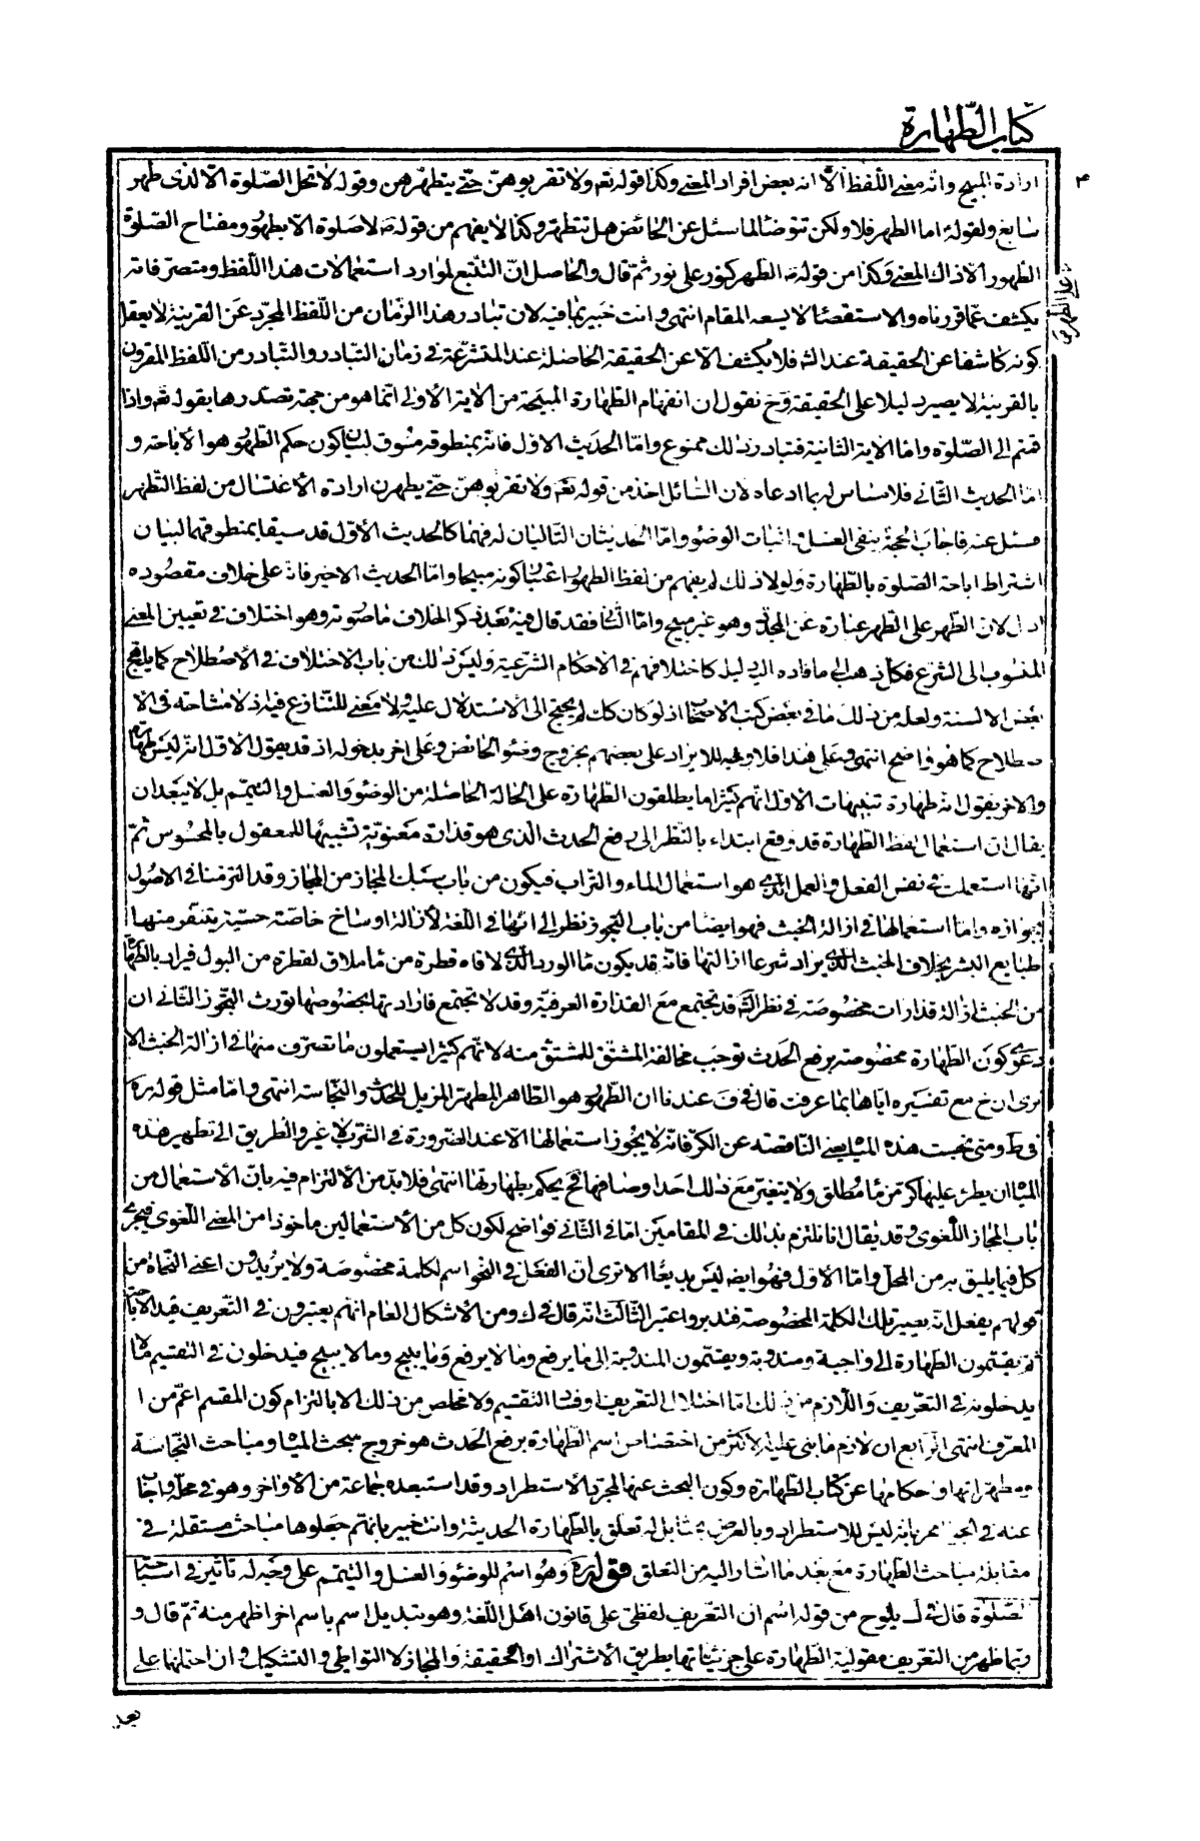 كتاب الطّهارة
٣
ارادة المبيح وانّه معنى اللّفظ الّا انّه بعض افراد المعنى وكذا قوله تع ولا تقربوهنّ حتّى يتطهّرهن وقوله لا تحلّ الصّلوة الّا لذى طهر
سابغ ولقوله امّا الطهر فلا ولكن تتوضّأ لما سئل عن الحائض هل تتطهّر وكذا لا يفهم من قوله ص لا صلوة الّا بطهور ومفتاح الصّلوة
الطّهور الّا ذاك المعنى وكذا من قوله ص الطّهر على الطّهر كنور على نور ثمّ قال والحاصل انّ التّتبّع لموارد استعمالات هذا اللّفظ ومتصرّفاته
على الطّهر
يكشف عمّا قررناه والاستقصاء لا يسعه المقام انتهى وانت خبير بما فيه لان تبادر هذا الزّمان من اللّفظ المجرّد عن القرينة لا يعقل
كونه كاشفا عن الحقيقة عند الش فلا يكشف الّا عن الحقيقة الحاصلة عند المتشرّعة في زمان التّبادر والتّبادر من اللّفظ المقرون
بالقرينة لا يصير دليلا على الحقيقة وح نقول ان انفهام الطّهارة المبيحة من الآية الأولى انّما هو من جهة تصدّرها بقوله تع واذا
قمتم الى الصّلوة وامّا الآية الثانية فتبادر ذلك ممنوع وامّا الحديث الاوّل فانّه بمنطوقه مسوق لبيان كون حكم الطّهور هو الأباحة و
امّا الحديث الثّانى فلا مساس له بما ادعاه لان السّائل اخذ من قوله تع ولا تقربوهنّ حتّى يطهرن ارادة الأغتسال من لفظ التّطهر
فسئل عنه فاجاب الحجّة بنفى الغسل واثبات الوضوء وامّا الحديثان التّاليان له فهما كالحديث الأوّل قد سيقا بمنطوقهما لبيان
اشتراط اباحة الصّلوة بالطّهارة ولولا ذلك لم يفهم من لفظ الطهور اعتبار كونه مبيحا وامّا الحديث الاخير فانّه على خلاف مقصوده
ادلّ لان الطّهر على الطّهر عبارة عن المجدّد وهو غير مبيح وامّا الثّانى فقد قال فيه بعد ذكر الخلاف ما صورته وهو اختلاف في تعيين المعنى
المنسوب الى الشرع فكلّ ذهب الى ما قاده اليه الدليل كاختلافهم في الاحكام الشّرعيّة وليس ذلك من باب الاختلاف في الاصطلاح كما يلهج
بعض الالسنة ولعله من ذلك ما في بعض كتب الاصحاب اذ لو كان كك لم يحتج الى الاستدلال عليه ولا معنى للتّنازع فيه اذ لا مشاحّة في الا
صطلاح كما هو واضح انتهى وعلى هذا فلا وجه للايراد على بعضهم بخروج وضوء الحائض وعلى اخر بدخوله اذ قد يقول الاوّل انّه ليس طهارة
والاخر يقول انّه طهارة تنبيهات الاوّل انّهم كثيرا ما يطلقون الطّهارة على الحالة الحاصلة من الوضوء والغسل والتيمّم بل لا يبعد ان
يقال ان استعمال لفظ الطّهارة قد وقع ابتداء بالنّظر الى رفع الحدث الّذى هو قذارة معنويّة تشبيهًا للمعقول بالمحسوس ثمّ
انّها استعملت في نفس الفعل والعمل الّذى هو استعمال الماء والتّراب فيكون من باب سبك المجاز من المجاز وقد التزمنا في الاصول
بجوازه وامّا استعمالها في ازالة الخبث فهو ايضا من باب التّجوّز نظرا الى انّها في اللّغة لأزالة اوساخ خاصّة حسّيّة يتنفّر منها
طبايع البشر بخلاف الخبث الّذى يراد شرعا ازالتها فانّه قد يكون كماء الورد الّذى لاقاه قطرة من ماء ملاق لقطرة من البول فيراد بالطّهارة
من الخبث ازالة قذارات مخصوصة في نظر الش قد تجتمع مع القذارة العرفيّة وقد لا تجتمع فارادتها بخصوصها تورث التّجوّز الثّانى ان
دعوى كون الطّهارة مخصوصة برفع الحدث توجب مخالفة المشتقّ للمشتقّ منه لانّهم كثيرا يستعملون ما تصرّف منها في ازالة الخبث الا
ترى ان خ مع تفسيره ايّاها بما عرفت قال في ف عندنا ان الطّهور هو الطّاهر المطهّر المزيل للحدث والنّجاسة انتهى وامّا مثل قوله ره
في ط ومتى نجست هذه المياه يعنى النّاقصة عن الكرّ فانّه لا يجوز استعمالها الّا عند الضّرورة في الشّرب لا غير والطّريق الى تطهير هذه
المياه ان يطرء عليها كرّ من ماء مطلق ولا يتغيّر مع ذلك احد اوصافها فح يحكم بطهارتها انتهى فلا بدّ من الألتزام فيه بانّ الأستعمال من
باب المجاز اللّغوى وقد يقال انّا نلتزم بذلك في المقامين امّا في الثّانى فواضح لكون كلّ من الأستعمالين ماخوذا من المعنى اللّغوى فيجرى
كلّ فيما يليق به من المحلّ وامّا الأوّل فهو ايضا ليس بديعًا الا ترى ان الفعل في النّحو اسم لكلمة مخصوصة ولا يريدون اعنى النّحاة من
قولهم يفعل انّه يصير تلك الكلمة المخصوصة فتدبر واعتبر الثّالث انّه قال في ك ومن الأشكال العام انّهم يعتبرون في التّعريف قيد الاباحة
ثمّ يقسّمون الطّهارة الى واجبة ومندوبة ويقسّمون المندوبة الى ما يرفع وما لا يرفع وما يبيح وما لا يبيح فيدخلون في التّقسيم ما لا
يدخلونه في التّعريف واللّازم من ذلك امّا اختلال التّعريف او فساد التّقسيم ولا مخلص من ذلك الا بالتزام كون المقسم اعمّ من ا
لمعرّف انتهى الرّابع ان لازم ما بنى عليه الأكثر من اختصاص اسم الطّهارة برفع الحدث هو خروج مبحث المياه ومباحث النّجاسة
ومطهّراتها واحكامها عن كتاب الطّهارة وكون البحث عنها لمجرّد الاستطراد وقد استبعده جماعة من الأواخر وهو في محلّه واجاب
عنه في بانّه ليس للاستطراد وبالعرض بل له تعلّق بالطّهارة الحدثيّة وانت خبير بانّهم جعلوها مباحث مستقلة في
مقابلة مباحث الطّهارة مع بعد ما اشار اليه من التعلق قوله ره وهو اسم للوضوء والغسل والتيمّم على وجه له تأثير في استباحة
الصّلوة قال في ك يلوح من قوله اسم ان التّعريف لفظىّ على قانون اهل اللّغة وهو تبديل اسم باسم اخر اظهر منه ثمّ قال و
ربّما ظهر من التّعريف مقولية الطّهارة على جزئيّاتها بطريق الأشتراك او الحقيقة والمجاز لا التواطى والتشكيك وان احتملهما على
بعد